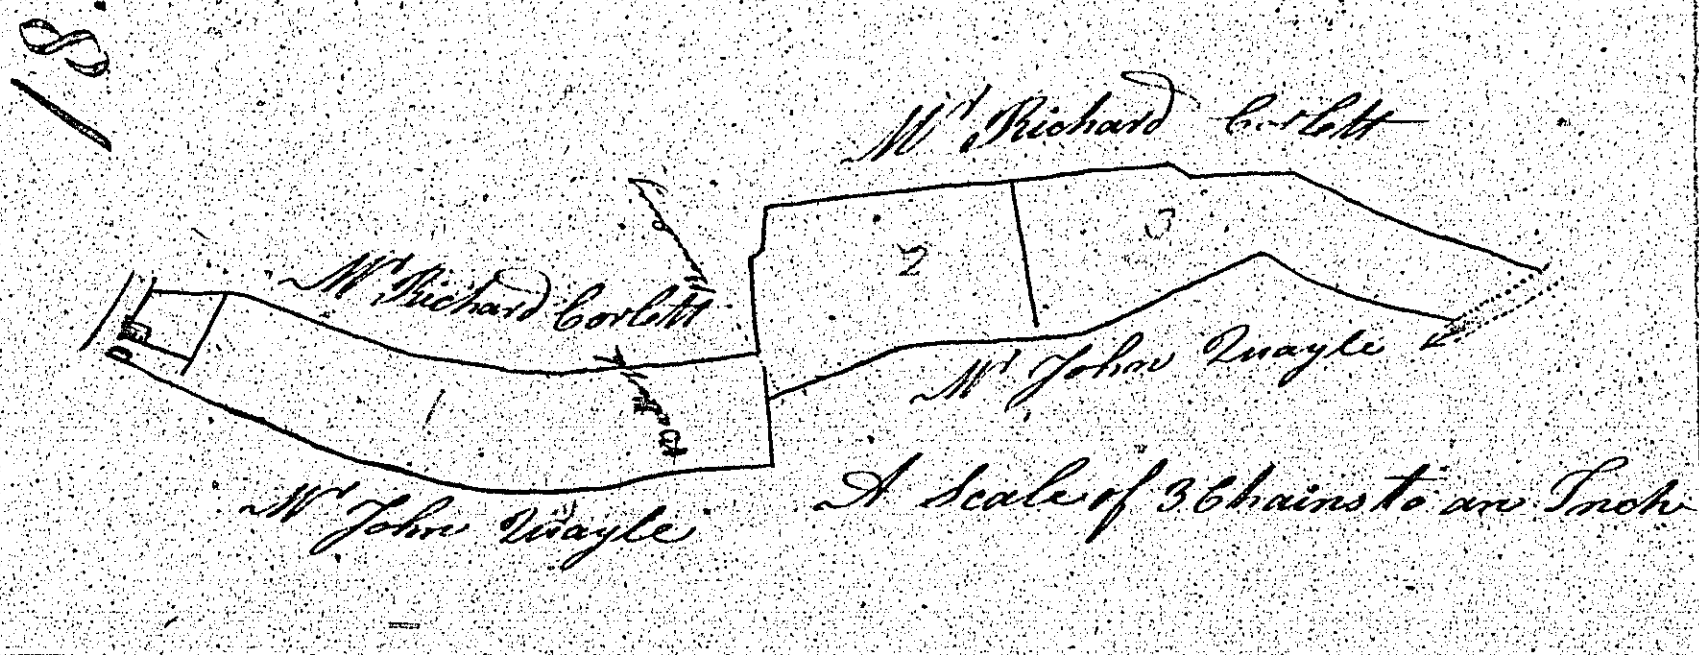 18
Mr Richard Corlett
2
3
Mr Richard Corlett
Mr John Quayle
1
Mr John Quayle
A Scale of 3 Chains to an Inch